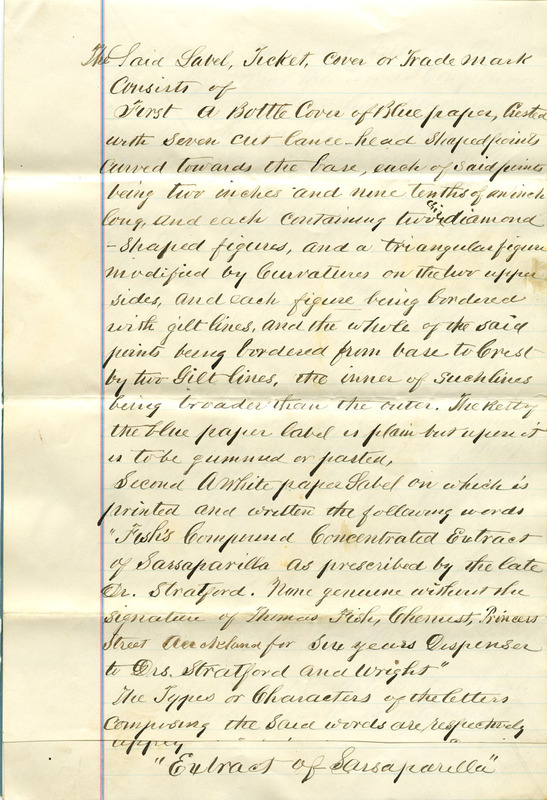 The Said Label, Ticket, Cover or Trade Mark
Consists of
First a Bottle Cover of Blue paper, Crested
with seven cut lance-head shaped points
curved towards the base, each of said points
being two inches and nine tenths of an inch
long, and each containing two diamond
-shaped figures, and a triangular figure
modified by Curvatures on the two upper
sides, and each figure being bordered
with gilt lines, and the whole of the said
points being bordered from base to Crest
by two Gilt lines, the inner of such lines
being broader than the outer. The
the blue paper label is plain but upon it
is to be gummed or pasted,
Second A White paper Label on which is
printed and written the following words
"Fish's Compound Concentrated Extract
of Sassaparilla as prescribed by the late
Dr. Stratford. None genuine without the
signature of Thomas Fish, Chemist, Princes
Street Auckland for six years Dispenser
to Drs. Stratford and Wright"
The Types or Characters of the letters
composing the said words are, respectively
"Extract of Sassaparilla"